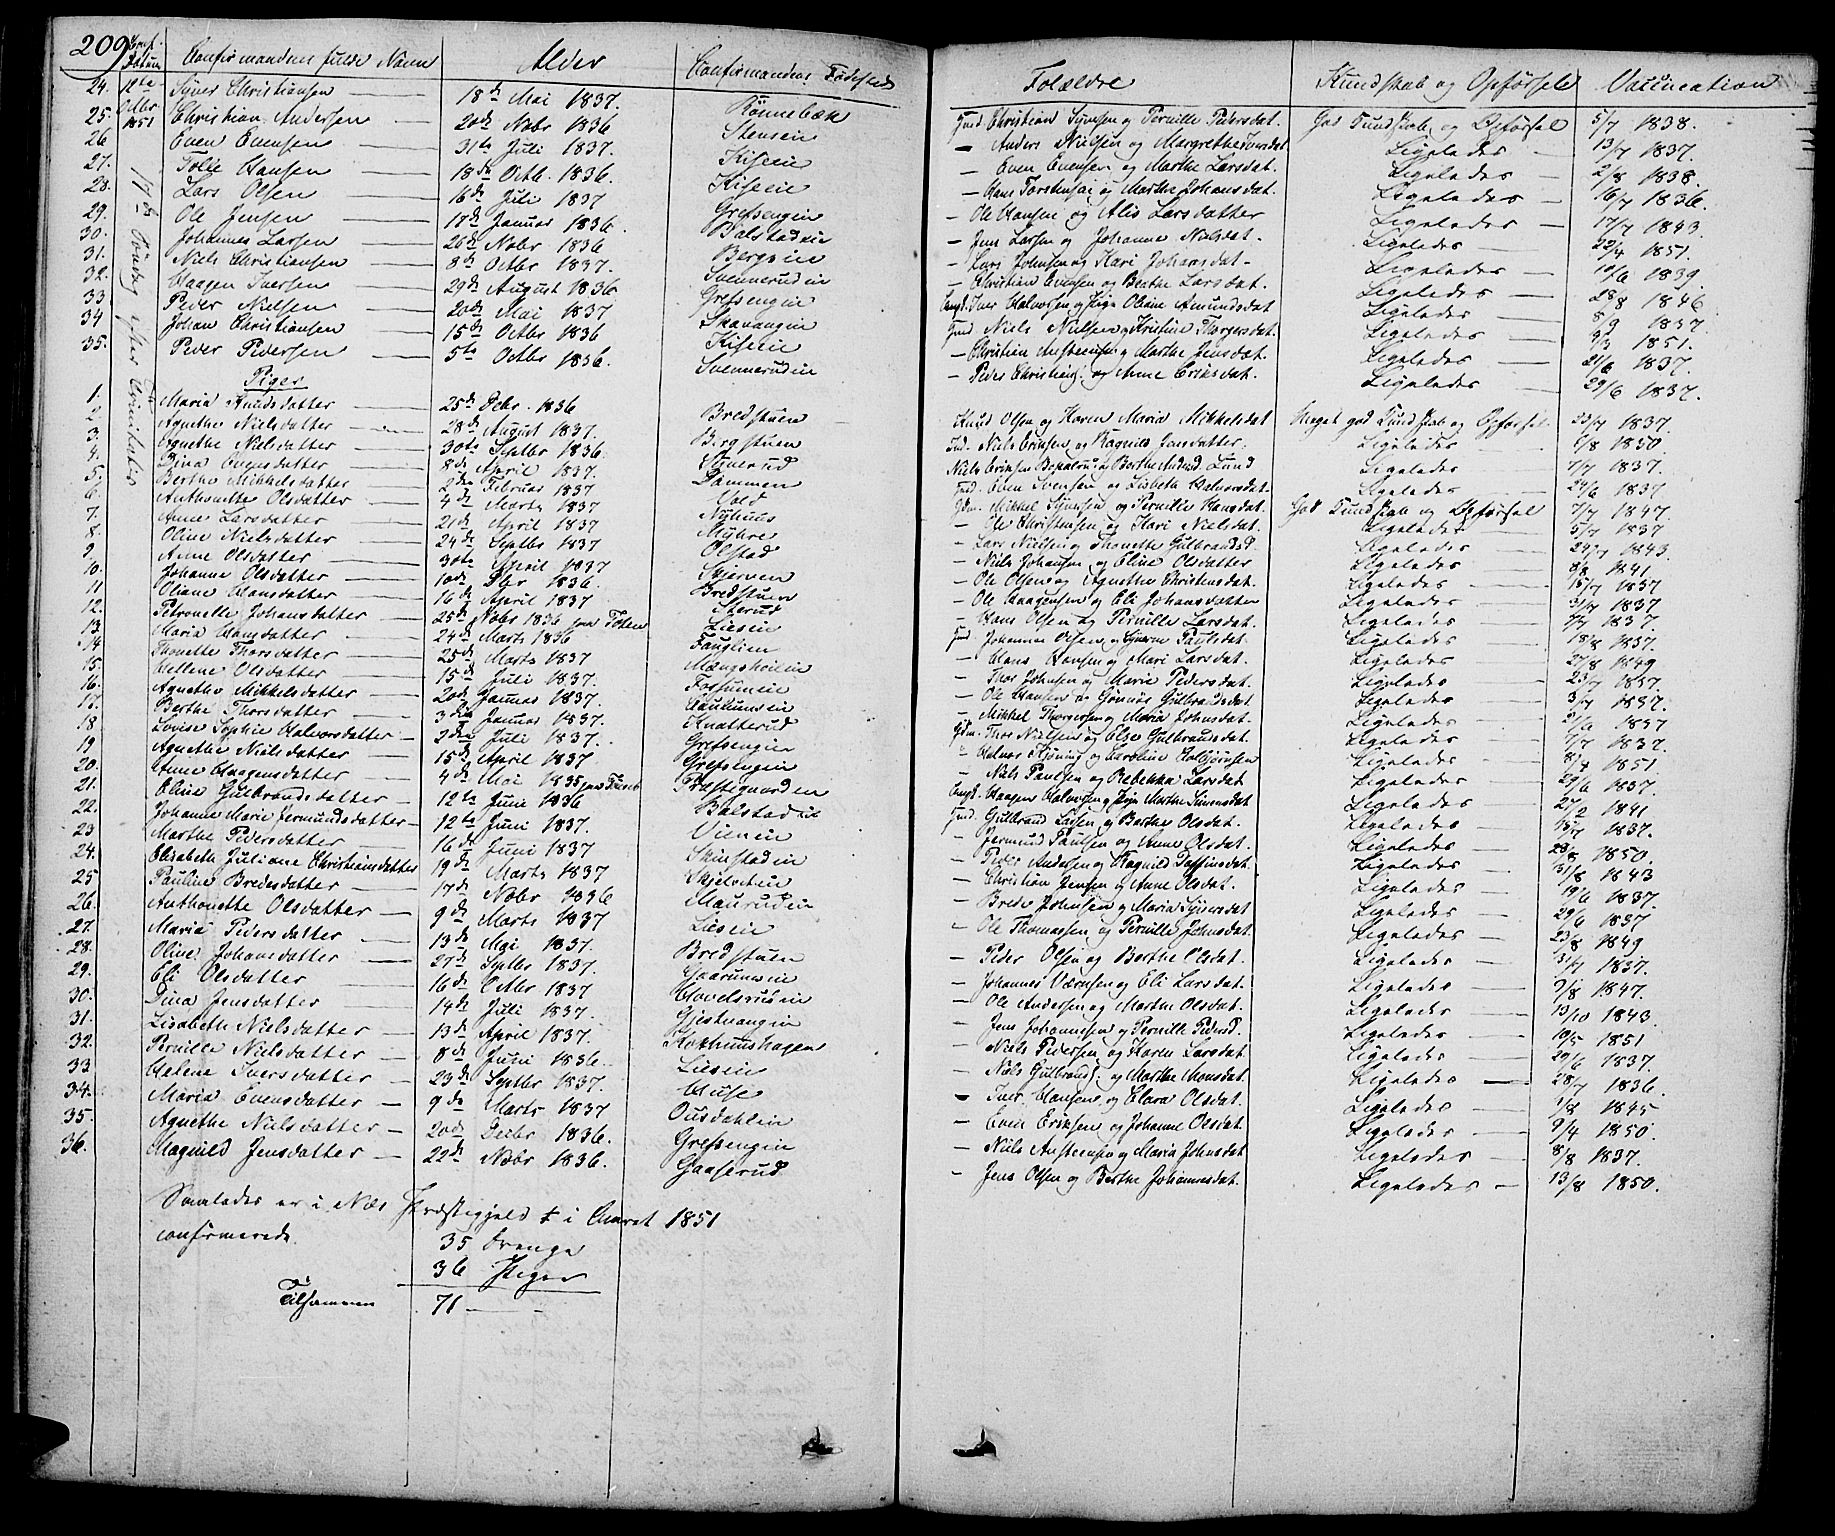 209 Conf. Datum Confirmandens fulde Navn Alder Confirmandens Fødested Forældre Kundskab og Opførsel Vaccination
24. 12te Octbr 1851 Syver Christiansen 18de Mai 1837. Rønnebæk Gmd. Christian Syversen og Pernille Pedersdat. God Kundskab og Opførsel 5/7 1838.
25. Christian Andersen 20de Novbr 1836 Stenseie — Anders Nielsen og Margrethe Iversdat Ligeledes 13/7 1837.
26 Even Evensen 31te Juli 1837. Kiseie — Even Evensen og Marthe Larsdat. Ligeledes 2/8 1838.
27. Hansen 18de Octb. 1836. Kiseie — Hans Torstensen og Marthe Johansdat. Ligeledes 16/7 1836.
28. Lars Olsen 16de Juli 1837 Grefsengeie — Ole Hansen og Alis Larsdatter Ligeledes 17/7 1843.
29. Ole Jensen 17de Januar 1836. Balstadeie — Jens Larsen og Johanne Nielsdat. Ligeledes 22/4 1851.
30. Johannes Larsen 26de Novbr 1836 Bergeie — Lars Johnsen og Kari Johansdat. Ligeledes 10/6 1839.
31. Niels Christiansen 8de Octbr 1837. Svennerudeie — Christian Evensen og Berthe Larsdat. Ligeledes 28/8 1846
32. Haagen Iversen 29de August 1836 Grefsengeie Ungd. Iver Halvorsen og Pige Oliane Amundsdat Ligeledes 1837.
33 Peder Nielsen 20de Mai 1837 Skavangeie Gmd. Niels Nielsen og Kristine Thorgersdat. Ligeledes 1851.
34 Johan Christiansen 15de Octbr 1836 Kiseie — Christian Andersen og Marthe Jensdat. Ligeledes 21/6 1837.
35. Peder Pedersen 5te Octbr 1836. Svennerudeie — Peder Christians. og Anne Eriksdat. Ligeledes 29/6 1837.
17de Søndag efter Trinitatis
Piger
1. Maria Knudsdatter 25de Debr. 1836 Bredstuen Knud Olsen og Karen Maria Mikkelsdat Meget god Kundskab og Opførsel 23/7 1837.
2. Agnethe Nielsdatter 28de August 1837. Bergstuen Ind. Niels Eriksen og Ragnild Jensdatter. Ligeledes 1850.
3. Agnethe Nielsdatter 30te Septbr 1836. Niels Eriksen og Berthe Lund Ligeledes 7/7 1837.
4. Dina Evensdatter 8de April 1837. Dammen Gmd. Even Svensen og Lisbeth Halvorsdat. Ligeledes 24/6 1837
5. Berthe Mikkelsdatter 2den Februar 1837 Vold Gdm. Mikkel Syversen og Pernille Hansdat. God Kundskab og Opførsel 7/7 1847.
6. Anthonette Olsdatter 4de Marts 1837 Nyhuus — Ole Christensen og Kari Nielsdat. Ligeledes 5/7 1837
7. Anne Larsdatter 21de April 1837 Myhre — Lars Nielsen og Thonette Gulbrandsd. Ligeledes 1843.
8. Oline Nielsdatter 24de Septbr 1837 Olstad — Niels Johansen og Eline Olsdatter Ligeledes 1841.
9. Anne Olsdatter 30te April 1837 Skjerven — Ole Olsen og Agnethe Christensdat. Ligeledes 15/7 1837
10. Johanne Olsdatter 10de Dbr 1836. Bredstuen — Ole Haagensen og Eli Johansdatter Ligeledes 31/7 1837
11 Oliane Hansdatter 16de April 1837 — Hans Olsen og Pernille Larsdat. Ligeledes 7/7 1837
12. Petronelle Johansdatter 25de Novbr 1836 paa Toten Lieseie Gmd. Johannes Olsen og Paulsdat. Ligeledes 18/8 1837.
13. Maria Hansdatter 24de Marts 1836 Fanglien — Hans Hansen og Mari Larsdat. Ligeledes 27/8 1849
14. Thonette Thorsdatter 25de Marts 1837 Mængshoileie — Thor Johnsen og Marie Pedersdat. Ligeledes 23/7 1837.
15. Hellene Olsdatter 15de Juli 1837. Fossumeie — Ole Hansen og Gulbrandsdat Ligeledes 3/7 1837.
16. Agnethe Mikkelsdatter 20de Januar 1837. — Mikkel Thorgersen og Maria Johnsdat. Ligeledes 21/6 1837
17. Berthe Thorsdatter 3die Januar 1837. Knatterud Gdm. Thor Nielsen og Else Gulbrandsdat. Ligeledes 1/7 1837.
18. Lovise Sophie Halvorsdatter 2den Juli 1837. Grefsengeie — Halvor Kjøning og Caroline Ligeledes 8/4 1851.
19 Agnethe Nielsdatter 15de April 1837 Grefsengeie — Niels Paulsen og Rebekka Larsdat Ligeledes 29/6 1837.
20. Anne Haagensdatter 4de Mai 1835 Præstegaardeie Ungd. Haagen Halvorsen og Pige Marthe Simensdat Ligeledes 27/2 1841
21. Eline Gulbrandsdatter 12te Juni 1836 Balstadeie Gmd. Gulbrand Larsen og Berthe Olsdat. Ligeledes 1837.
22. Johanne Marie Jermundsdatter 12te Juni 1837. Vieneie — Jermund Paulsen og Anne Olsdat. Ligeledes 28/8 1850.
23 Marthe Pedersdatter 16de Juni 1837 Skinstadeie — Peder Andersen og Ragnild Ligeledes 31/8 1843
24. Elisabeth Juliane Christiansdatter 19de Marts 1837 Skjelveeie — Christian Jensen og Anne Olsdat. Ligeledes 19/6 1837.
25 Pauline Bredesdatter 17de Novbr 1836 Maurudeie — Brede Johnsen og Maria Syversdat Ligeledes 29/6 1837
26. Anthonette Olsdatter 9de Marts 1837 Lieseie — Ole Thomassen og Pernille Johnsdat. Ligeledes 23/8 1849
27. Maria Pedersdatter 13de Mai 1837. Bredstuen — Peder Olsen og Berthe Olsdat. Ligeledes 31/7 1837.
28. Oline Johansdatter 27de Septbr 1837. Gaaruneie — Johannes Værnsen og Eli Larsdat. Ligeledes 9/8 1847.
29. Eli Olsdatter 16de Octbr 1837 Havelsrudeie — Ole Andersen og Marthe Olsdat. Ligeledes 13/10 1843.
30. Dina Jensdatter 14de Juli 1837. Gjestvangeie — Jens Johannesen og Pernille Pedersd. Ligeledes 19/5 1851
31. Lisabeth Nielsdatter 13de April 1837. Korthuushagen — Niels Pedersen og Karen Larsdat. Ligeledes 29/6 1837.
32. Pernille Nielsdatter 8de Juni 1836. Lieseie — Niels Gulbrands. og Marthe Monsdat. Ligeledes 28/7 1836.
33. Helene Iversdatter 23de Septbr 1837. Huse — Iver Hansen og Clara Olsdat. Ligeledes 1/8 1845
34. Maria Evensdatter 9de Marts 1837 Ousdahleie — Even Eriksen og Johanne Olsdat. Ligeledes 9/4 1850.
35. Agnethe Nielsdatter 20de Decbr 1836. Grefsengeie — Niels Andersen og Maria Johnsdat Ligeledes 8/8 1837.
36. Magnild Jensdatter 22de Novbr 1836. Gaaserud — Jens Olsen og Berthe Johannesdat. Ligeledes 13/8 1850.
Saaledes er i Næs Præstegjeld i Aaret 1851
confirmerede.
35 Drenge
36 Piger
Tilsammen 71